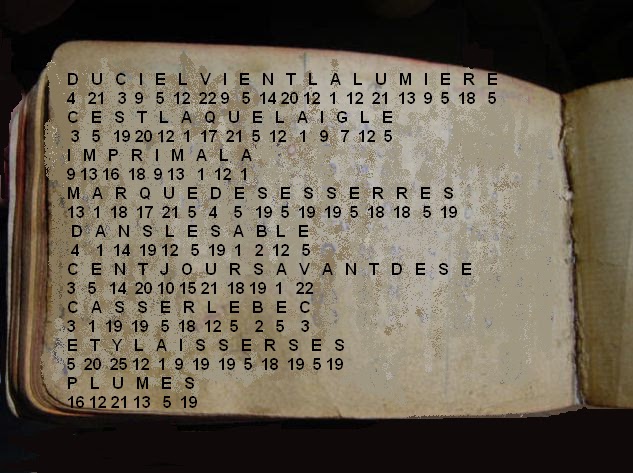 D U C I E L V I E N T L A L U M I E R E
4 21 3 9 5 12 22 9 5 14 20 12 1 12 21 13 9 5 18 5
C E S T L A Q U E L A I G L E
3 5 19 20 12 1 17 21 5 12 1 9 7 12 5
I M P R I M A L A
9 13 16 18 9 13 1 12 1
M A R Q U E D E S E S S E R R E S
13 1 18 17 21 5 4 5 19 5 19 19 5 18 18 5 19
D A N S L E S A B L E
4 1 14 19 12 5 19 1 2 12 5
C E N T J O U R S A V A N T D E S E
3 5 14 20 10 15 21 18 19 1 22
C A S S E R L E B E C
3 1 19 19 5 18 12 5 2 5 3
E T Y L A I S S E R S E S
5 20 25 12 1 9 19 19 5 18 19 5 19
P L U M E S
16 12 21 13 5 19